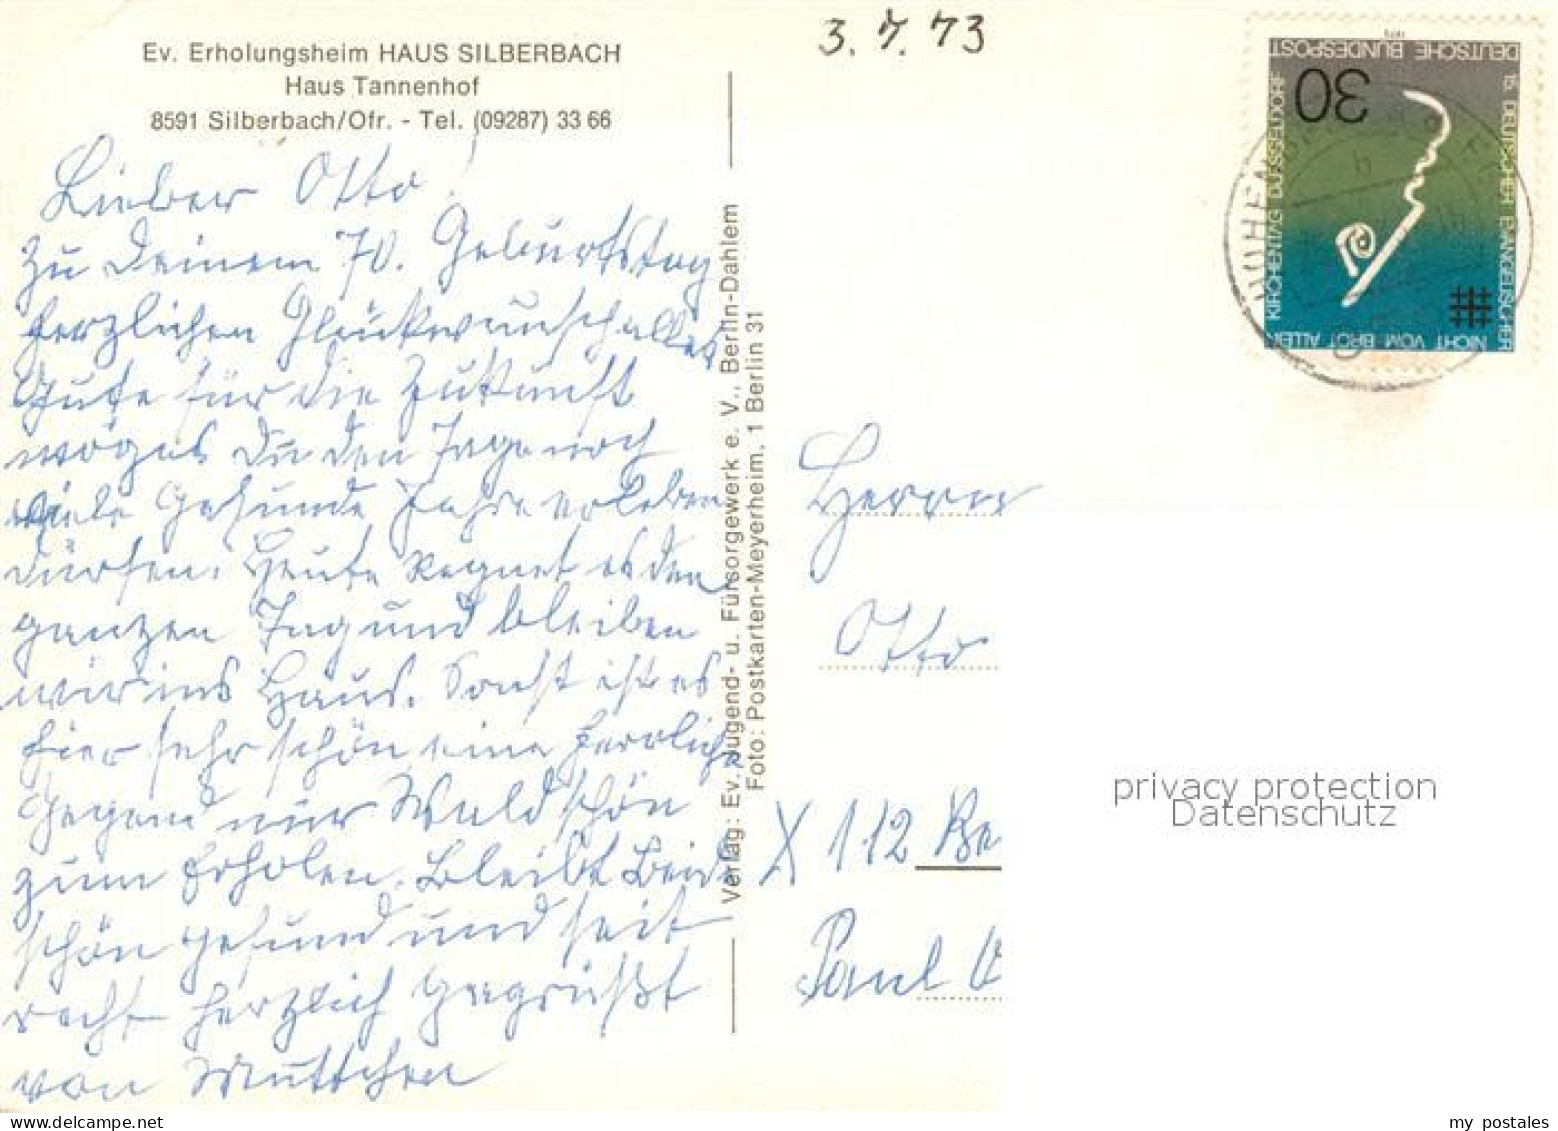 Ev. Erholungsheim HAUS SILBERBACH
Haus Tannenhof
8591 Silberbach/Ofr. - Tel. (09287) 33 66
3. 7. 73
Lieber Otto!
Zu Deinem 70. Geburtstag
herzlichen Glückwunsch alles
Gute für die Zukunft
mögest Du den Tage noch
viele Gesunde Jahre erleben
dürfen. Heute Regnet es den
ganzen Tag und bleiben
wir ins Haus. Sonst ist es
hier sehr schön eine herrliche
Gegend nur Wald schön
zum Erholen. Bleibt Beide
schön gesund und seit
recht herzlich gegrüßt
von Muttchen
Verlag: Ev. Jugend- u. Fürsorgewerk e. V., Berlin-Dahlem
Foto: Postkarten-Meyerheim, 1 Berlin 31
DEUTSCHE BUNDESPOST
30
15. DEUTSCHER EVANGELISCHER
KIRCHENTAG DÜSSELDORF
NICHT VOM BROT ALLEIN
1973
Herrn
Otto
X 112 Be
Paul
privacy protection
Datenschutz
my postales